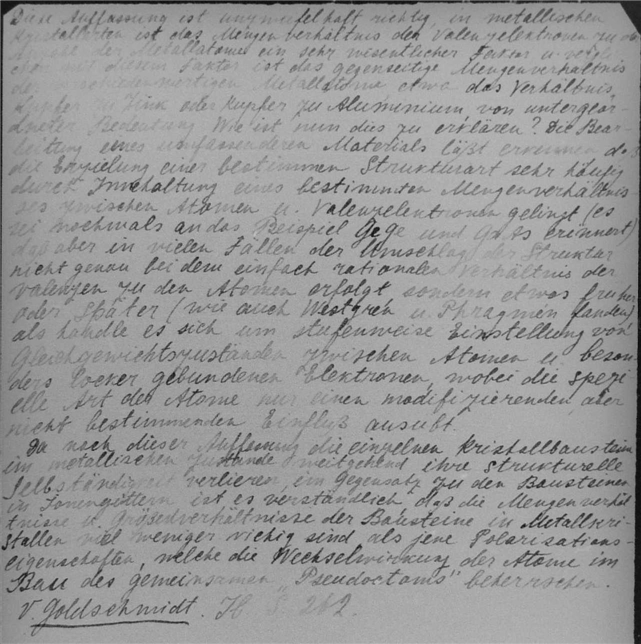 Diese Auffassung ist unzweifelhaft richtig, in metallischen
Kristallarten ist das Mengenverhältnis der Valenzelektronen zu
der Metallatome ein sehr wesentlicher Faktor u.
diesem Faktor ist das gegenseitige Mengenverhältnis
der verschiedenwertigen Metallatome etwa das Verhältnis
Kupfer zu Zink oder Kupher zu Aluminium von untergeor-
dneter Bedeutung Wie ist nun dies zu erklären? Die Bear-
beitung eines umfassenderen Materials läßt erkennen daß
die Erzielung einer bestimmen Strukturart sehr häufig
durch Innehaltung eines bestimmten Mengenverhältnis
ses zwischen Atomen u. Valenzelentronen gelingt (es
sei nochmals an das Beispiel GeGe und GaAs erinnert)
daß aber in vielen Fällen der Umschlag der Struktur
nicht genau bei dem einfach rationalen Verhältnis der
Valenzen zu den Atomen erfolgt sondern etwas fruher
oder später (wie auch Westgren u. Phragmen fanden)
als handle es sich um stufenweise Einstellung von
Gleichgewichtszuständen zwischen Atomen u. beson-
ders locker gebundenen Elektronen, wobei die spezi
elle Art der Atome nur einen modifizierenden, aber
nicht bestimmenden Einfluß ausubt.
Da nach dieser Auffassung die einzelnen Kristallbausteine
im metallischen Zustande weitgehend ihre Strukturelle
Selbständigkeit verlieren, im Gegensatz zu den Bausteinen
in Ionengittern ist es verständlich daß die Mengenverhäl
tnisse u. Grössenverhältnisse der Bausteine in Metallkri-
stallen viel weniger wichig sind als jene Polarisations-
eigenschaften, welche die Wechselwirkung der Atome im
Bau des gemeinsamen „Pseudoctoms" beherrschen.
V. Goldschmidt. H S. 262.